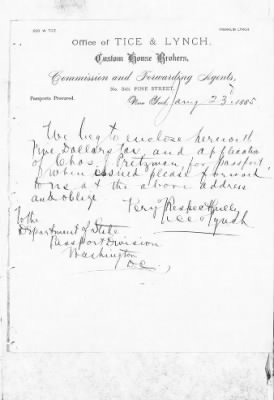 GEO W TICE
FRANKLIN LYNCH
Office of TICE & LYNCH,
Custom House Brokers,
Commission and Forwarding Agents,
PINE STREET,
Passports Procured.
New York, Jany 23d 1885
We beg to enclose herewith
Five Dollars and application
of Chas. Pretzman for passport,
when issued please forward
to us at the above address
and oblige
Very Respectfully
Tice & Lynch
To the
Department of State
Passport Division
Washington
D.C.,